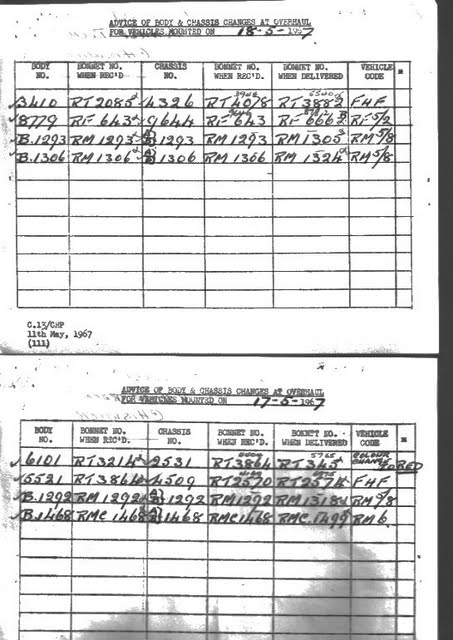 ADVICE OF BODY & CHASSIS CHANGES AT OVERHAUL
FOR VEHICLES MOUNTED ON 18-5-1967
BODY NO. BONNET NO. WHEN REC'D. CHASSIS NO. BONNET NO. WHEN REC'D. BONNET NO. WHEN DELIVERED VEHICLE CODE
3410 RT 2085 4326 RT 4078 RT 3882 FHF
8779 RF 643 9644 RF 643 RF 666 RF 5/2
B.1293 RM 1293 1293 RM 1293 RM 1305 RM 5/8
B.1306 RM 1306 1306 RM 1306 RM 1324 RM 5/8
C.13/CHP
11th May, 1967
(111)
ADVICE OF BODY & CHASSIS CHANGES AT OVERHAUL
FOR VEHICLES MOUNTED ON 17-5-1967
BODY NO. BONNET NO. WHEN REC'D. CHASSIS NO. BONNET NO. WHEN REC'D. BONNET NO. WHEN DELIVERED VEHICLE CODE
6101 RT 3214 2531 RT 3864 RT 345 COLOUR CHANGE TO RED
5521 RT 3864 4509 RT 2570 RT 2574 FHF
B.1292 RM 1292 1292 RM 1292 RM 1318 RM 5/8
B.1468 RMC 1468 1468 RMC 1468 RMC 1499 RM 6